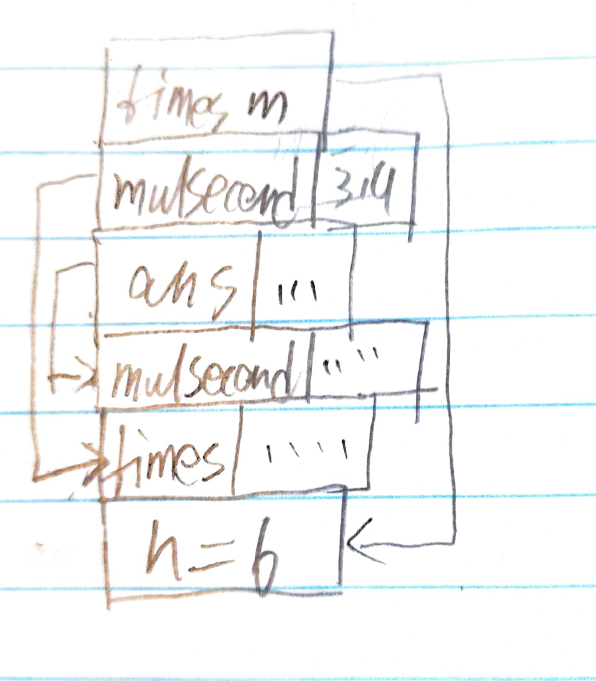 times m
mulsecond 3.4
ans ...
mulsecond ....
times ....
n=6